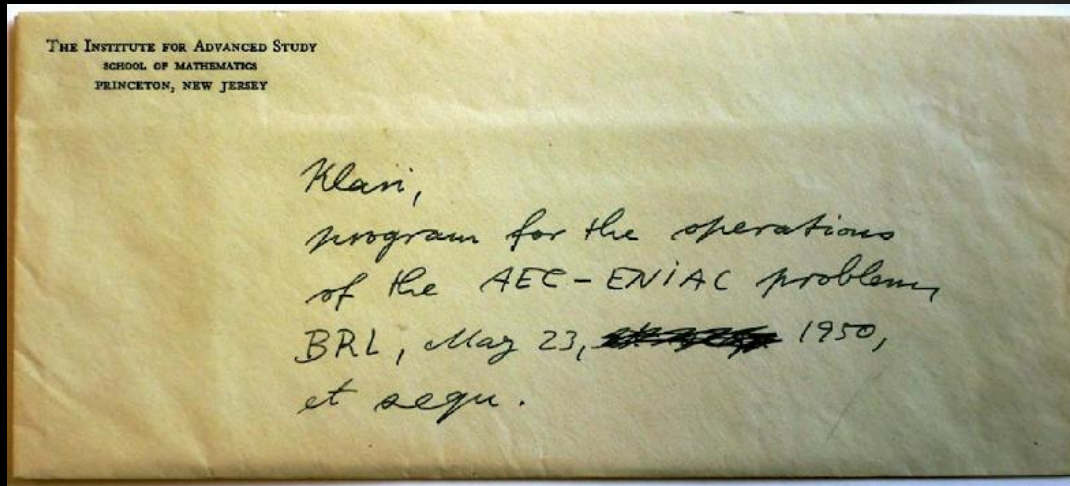 THE INSTITUTE FOR ADVANCED STUDY
SCHOOL OF MATHEMATICS
PRINCETON, NEW JERSEY
Klari,
program for the operations
of the AEC-ENIAC problem,
BRL, May 23, 1950,
et sequ.